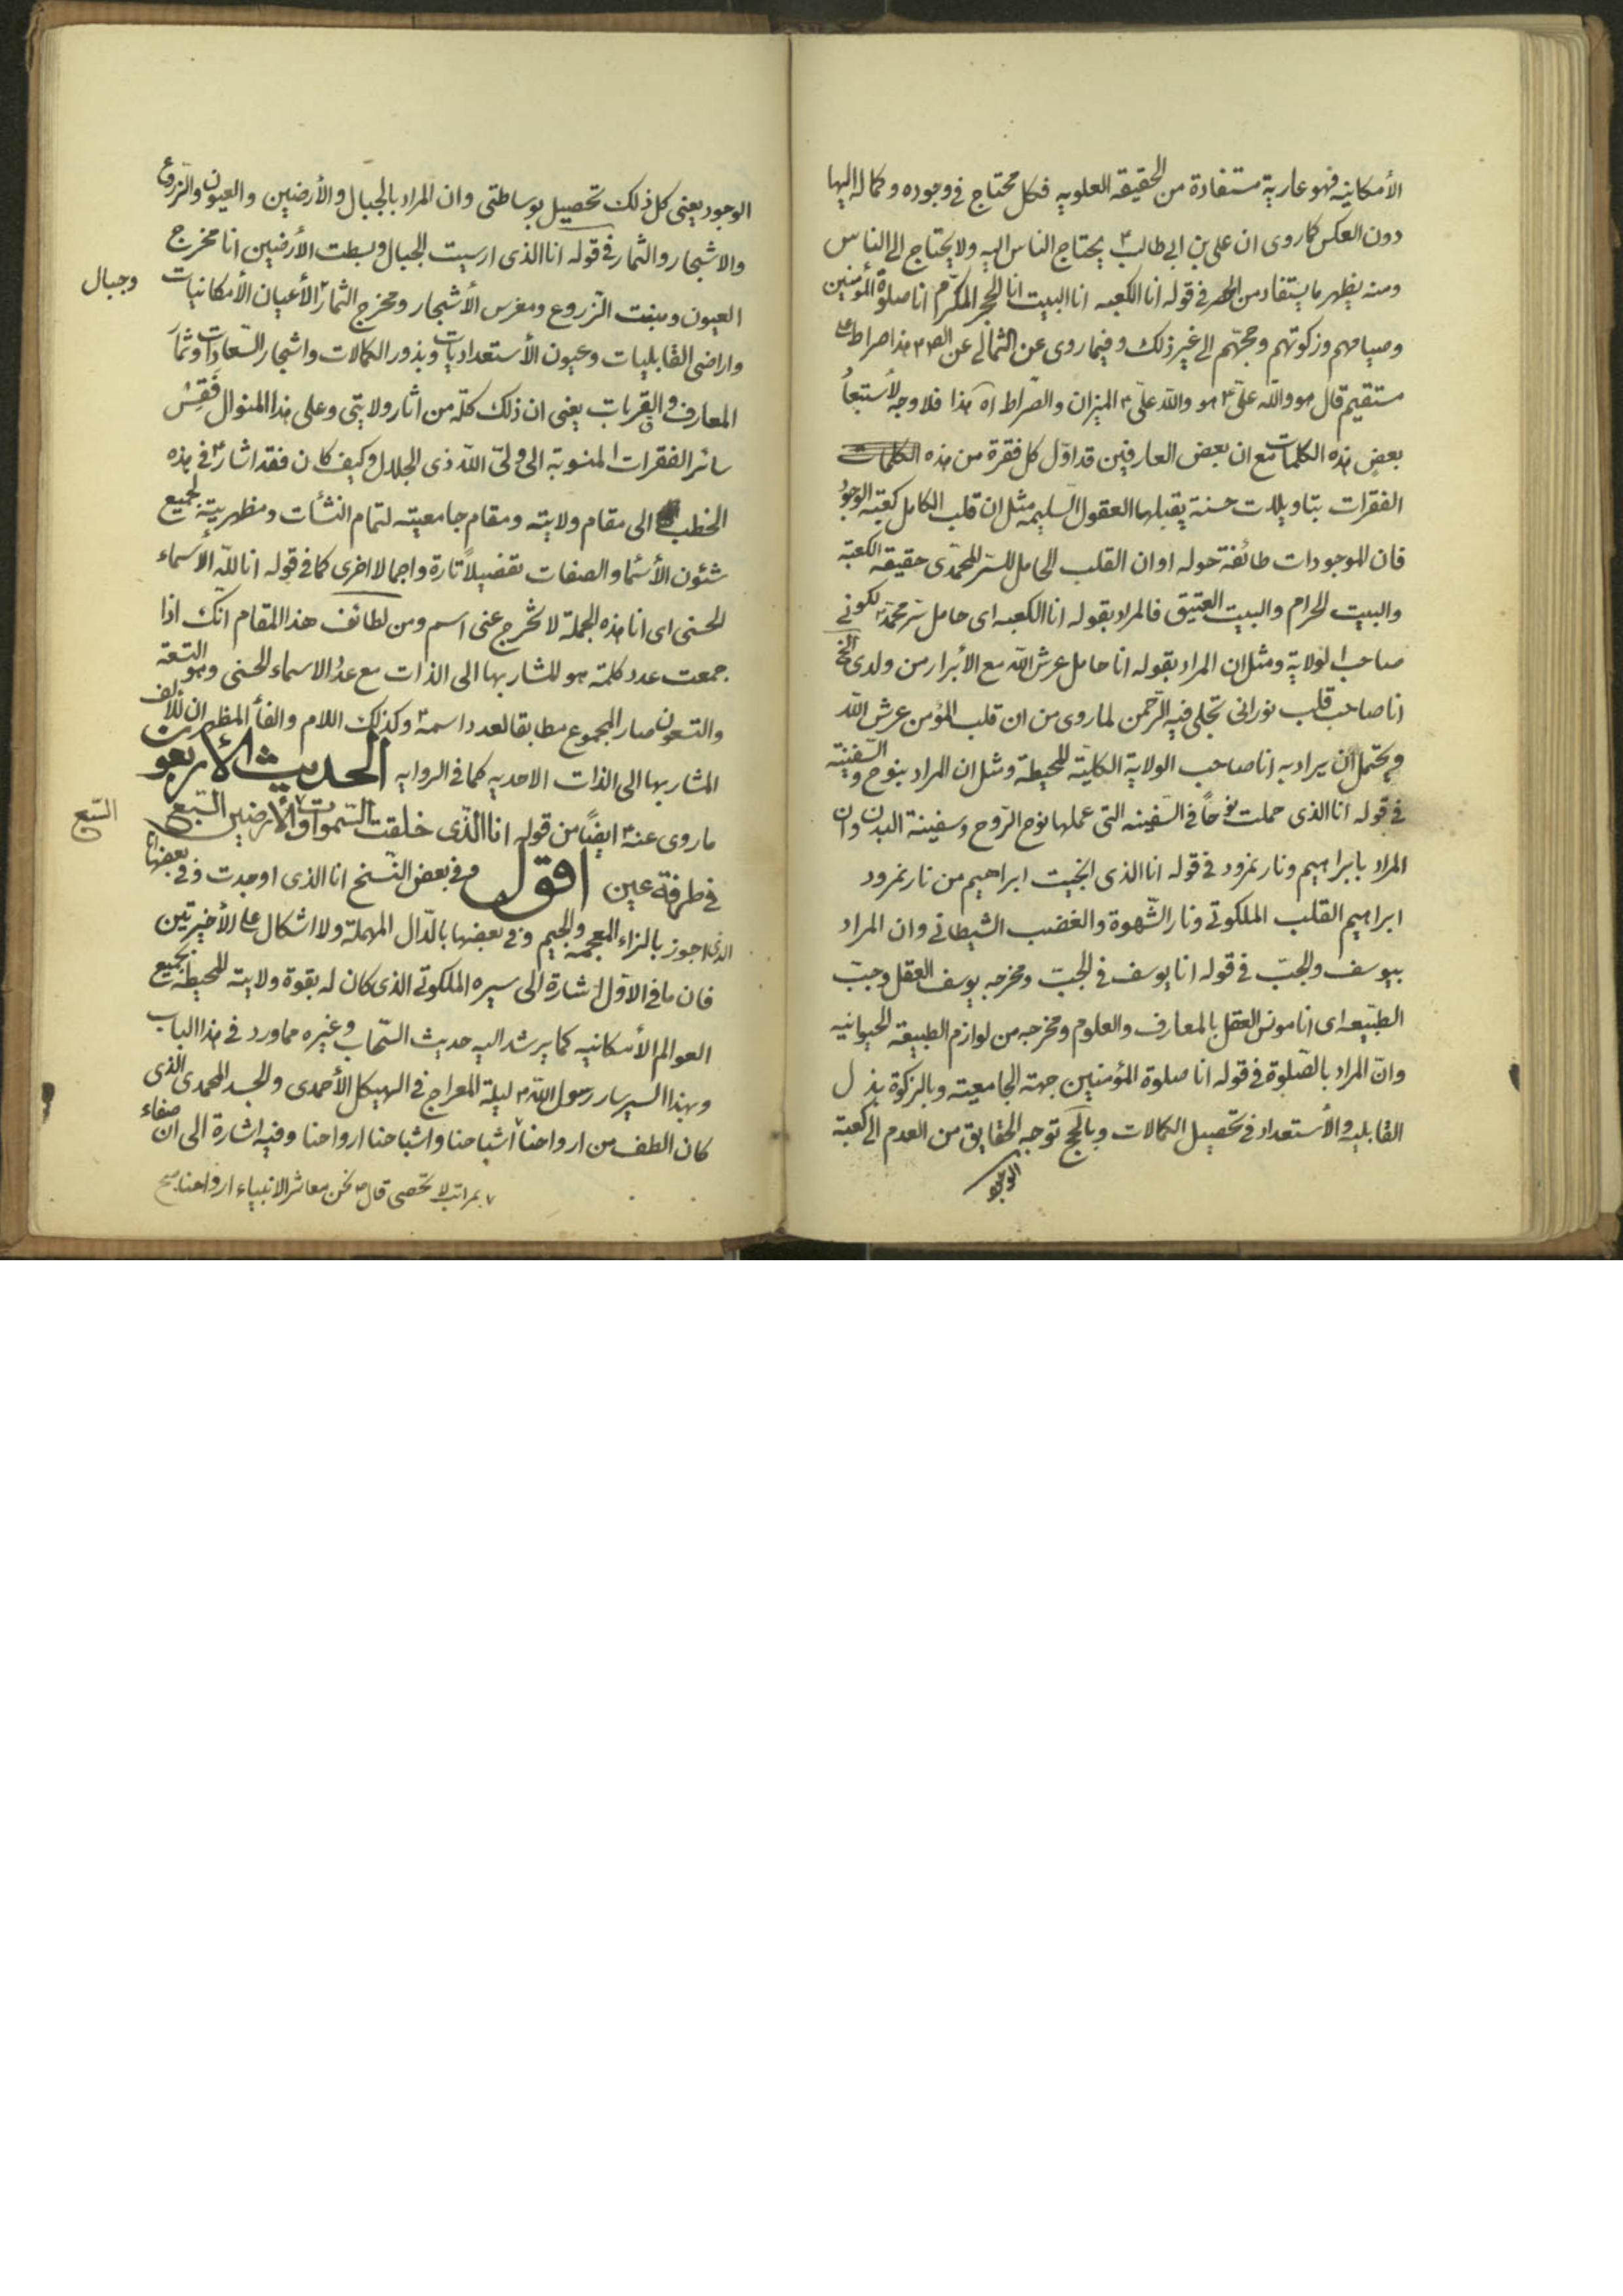 الأمكانيه فهو عارية مستفادة من الحقيقة العلويه فكل محتاج فى وجوده وكماله اليها
دون العكس كما روى ان على بن ابى طالب ؑ يحتاج الناس اليه ولا يحتاج الى الناس
ومنه يظهر ما يستفاد من الحصر فى قوله انا الكعبه انا البيت انا الحجر المكرّم انا صلوة المؤمنين
وصيامهم وزكوتهم وحجّهم الى غير ذلك وفيما روى عن الثمالى عن الص ؑ هذا صراط على
مستقيم قال هو والله علىّ ؑ هو والله علىّ ؑ الميزان والصّراط اه هذا فلا وجه لأستبعاد
بعض هذه الكلمات مع ان بعض العارفين قد اوّل كل فقرة من هذه الكلمات
الفقرات بتاويلات حسنة يقبلها العقول السليمه مثل ان قلب الكامل كعبة الوجود
فان الموجودات طائفة حوله او ان القلب الحامل للسّر المحمّدى حقيقة الكعبّة
والبيت الحرام والبيت العتيق فالمراد بقوله انا الكعبه اى حامل سّر محمّد ؐ لكونى
صاحب الولاية ومثل ان المراد بقوله انا حامل عرش الله مع الأبرار من ولدى الخ
انا صاحب قلب نورانى تجلى فيه الرّحمن لما روى من ان قلب المؤمن عرش الله
ويحتمل ان يراد به انا صاحب الولاية الكليّة المحيطة ومثل ان المراد بنوح والسّفينة
فى قوله انا الذى حملت نوحاً فى السّفينه التى عملها نوح الرّوح وسفينة البدن وان
المراد بابراهيم ونار نمرود فى قوله انا الذى انجيت ابراهيم من نار نمرود
ابراهيم القلب الملكوتى ونار الشّهوة والغضب الشيطانى وان المراد
بيوسف والجبّ فى قوله انا يوسف فى الجبّ ومخرجه يوسف العقل وجبّ
الطبّيعه اى انا مونس العقل بالمعارف والعلوم ومخرجه من لوازم الطبيعة الحيوانيه
وانّ المراد بالصّلوة فى قوله انا صلوة المؤمنين جهته الجامعيته وبالزكوة بذل
القابليه والأستعداد فى تحصيل الكمالات وبالحج توجه الحقايق من العدم الى كعبة
الوجود
الوجود يعنى كل ذلك تحصيل بوساطتى وان المراد بالجبال والأرضين والعيون والزروع
والاشجار والثمار فى قوله انا الذى ارسيت الجبال وبسطت الأرضين انا مخرج
العيون ومنبت الزّروع ومغرس الأشجار ومخرج الثمار الأعيان الأمكانيات
وجبال
واراضى القابليات وعيون الأستعداديات وبذور الكمالات واشجار السّعادات وثمار
المعارف والقربات يعنى ان ذلك كلّه من اثار ولايتى وعلى هذا المنوال فَقِسْ
سائر الفقرات المنسوبة الى ولىّ الله ذى الجلال وكيف كان فقد اشار ؑ فى هذه
الخطب الى مقام ولايته ومقام جامعيته لتمام النشأت ومظهريته لجميع
شئون الأسماء والصفات تفضيلاً تارة واجمالا اخرى كما فى قوله انا لله الأسماء
الحسنى اى انا هذه الجملة لا تخرج عنى اسم ومن لطائف هذا المقام انّك اذا
جمعت عدد كلمة هو المشار بها الى الذات مع عدد الاسماء الحسنى وهو التسعة
والتسعون صار المجموع مطابقا لعدد اسمه ؑ وكذلك اللام والفأ المظهران للألف
المشار بها الى الذات الاحديه كما فى الروايه الحديث الأربعون
ما روى عنه ؑ ايضًا من قوله انا الّذى خلقت السّموات والأرضين السّبع
السّبع
فى طرفة عين اقول وفى بعض النّسخ انا الذى اوجدت وفى بعضها انا
الذى اجوز بالزاء المعجمة والجيم وفى بعضها بالدّال المهملة ولا اشكال على الأخيرتين
فان ما فى الاوّل اشارة الى سيره الملكوتى الذى كان له بقوة ولايته المحيطة بجميع
العوالم الأمكانيه كما يرشد اليه حديث السّحاب وغيره مما ورد فى هذا الباب
وبهذا السير سار رسول الله ؐ ليلة المعراج فى الهيكل الأحمدى والجسد المحمدى الذى
كان الطف من ارواحنا ۷ اشباحنا واشباحنا ارواحنا وفيه اشارة الى ان صفاء
۷ بمراتب لا تحصى قال ؐ نحن معاشر الانبياء ارواحنا صح